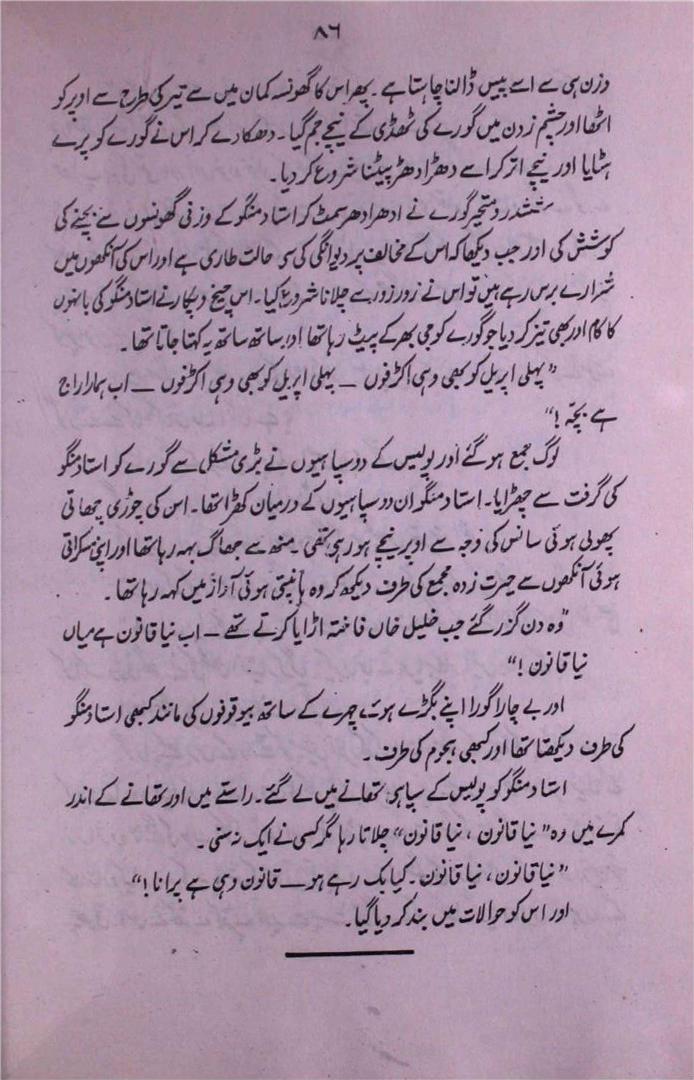 ۸۶
وزن ہی سے اسے پیس ڈالنا چاہتا ہے۔ پھر اس کا گھونسہ کمان میں سے تیر کی طرح سے اوپر کو
اٹھا اور چشم زدن میں گورے کی ٹھڈی کے نیچے جم گیا۔ دھکا دے کر اس نے گورے کو پرے
ہٹایا اور نیچے اتر کر اسے دھڑا دھڑ پیٹنا شروع کر دیا۔
ششدر و متحیر گورے نے ادھر ادھر سمٹ کر استاد منگو کے وزنی گھونسوں سے بچنے کی
کوشش کی اور جب دیکھا کہ اس کے مخالف پر دیوانگی کی سی حالت طاری ہے اور اس کی آنکھوں میں
شرارے برس رہے ہیں تو اس نے زور زور سے چلانا شروع کیا۔ اس چیخ و پکار نے استاد منگو کی بانہوں
کا کام اور بھی تیز کر دیا جو گورے کو جی بھر کے پیٹ رہا تھا اور ساتھ ساتھ یہ کہتا جاتا تھا۔
”پہلی اپریل کو بھی وہی اکڑفوں — پہلی اپریل کو بھی وہی اکڑفوں — اب ہمارا راج
ہے بچہ!“
لوگ جمع ہو گئے اور پولیس کے دو سپاہیوں نے بڑی مشکل سے گورے کو استاد منگو
کی گرفت سے چھڑایا۔ استاد منگو ان دو سپاہیوں کے درمیان کھڑا تھا۔ اس کی چوڑی چھاتی
پھولی ہوئی سانس کی وجہ سے اوپر نیچے ہو رہی تھی۔ منھ سے جھاگ بہہ رہا تھا اور اپنی مسکراتی
ہوئی آنکھوں سے حیرت زدہ مجمع کی طرف دیکھ کر وہ ہانپتی ہوئی آواز میں کہہ رہا تھا۔
”وہ دن گزر گئے جب خلیل خاں فاختہ اڑایا کرتے تھے — اب نیا قانون ہے میاں
نیا قانون!“
اور بے چارا گورا اپنے بگڑے ہوئے چہرے کے ساتھ بیوقوفوں کی مانند کبھی استاد منگو
کی طرف دیکھتا تھا اور کبھی ہجوم کی طرف۔
استاد منگو کو پولیس کے سپاہی تھانے میں لے گئے۔ راستے میں اور تھانے کے اندر
کمرے میں وہ ”نیا قانون، نیا قانون“ چلاتا رہا مگر کسی نے ایک نہ سنی۔
”نیا قانون، نیا قانون۔ کیا بک رہے ہو — قانون وہی ہے پرانا!“
اور اس کو حوالات میں بند کر دیا گیا۔